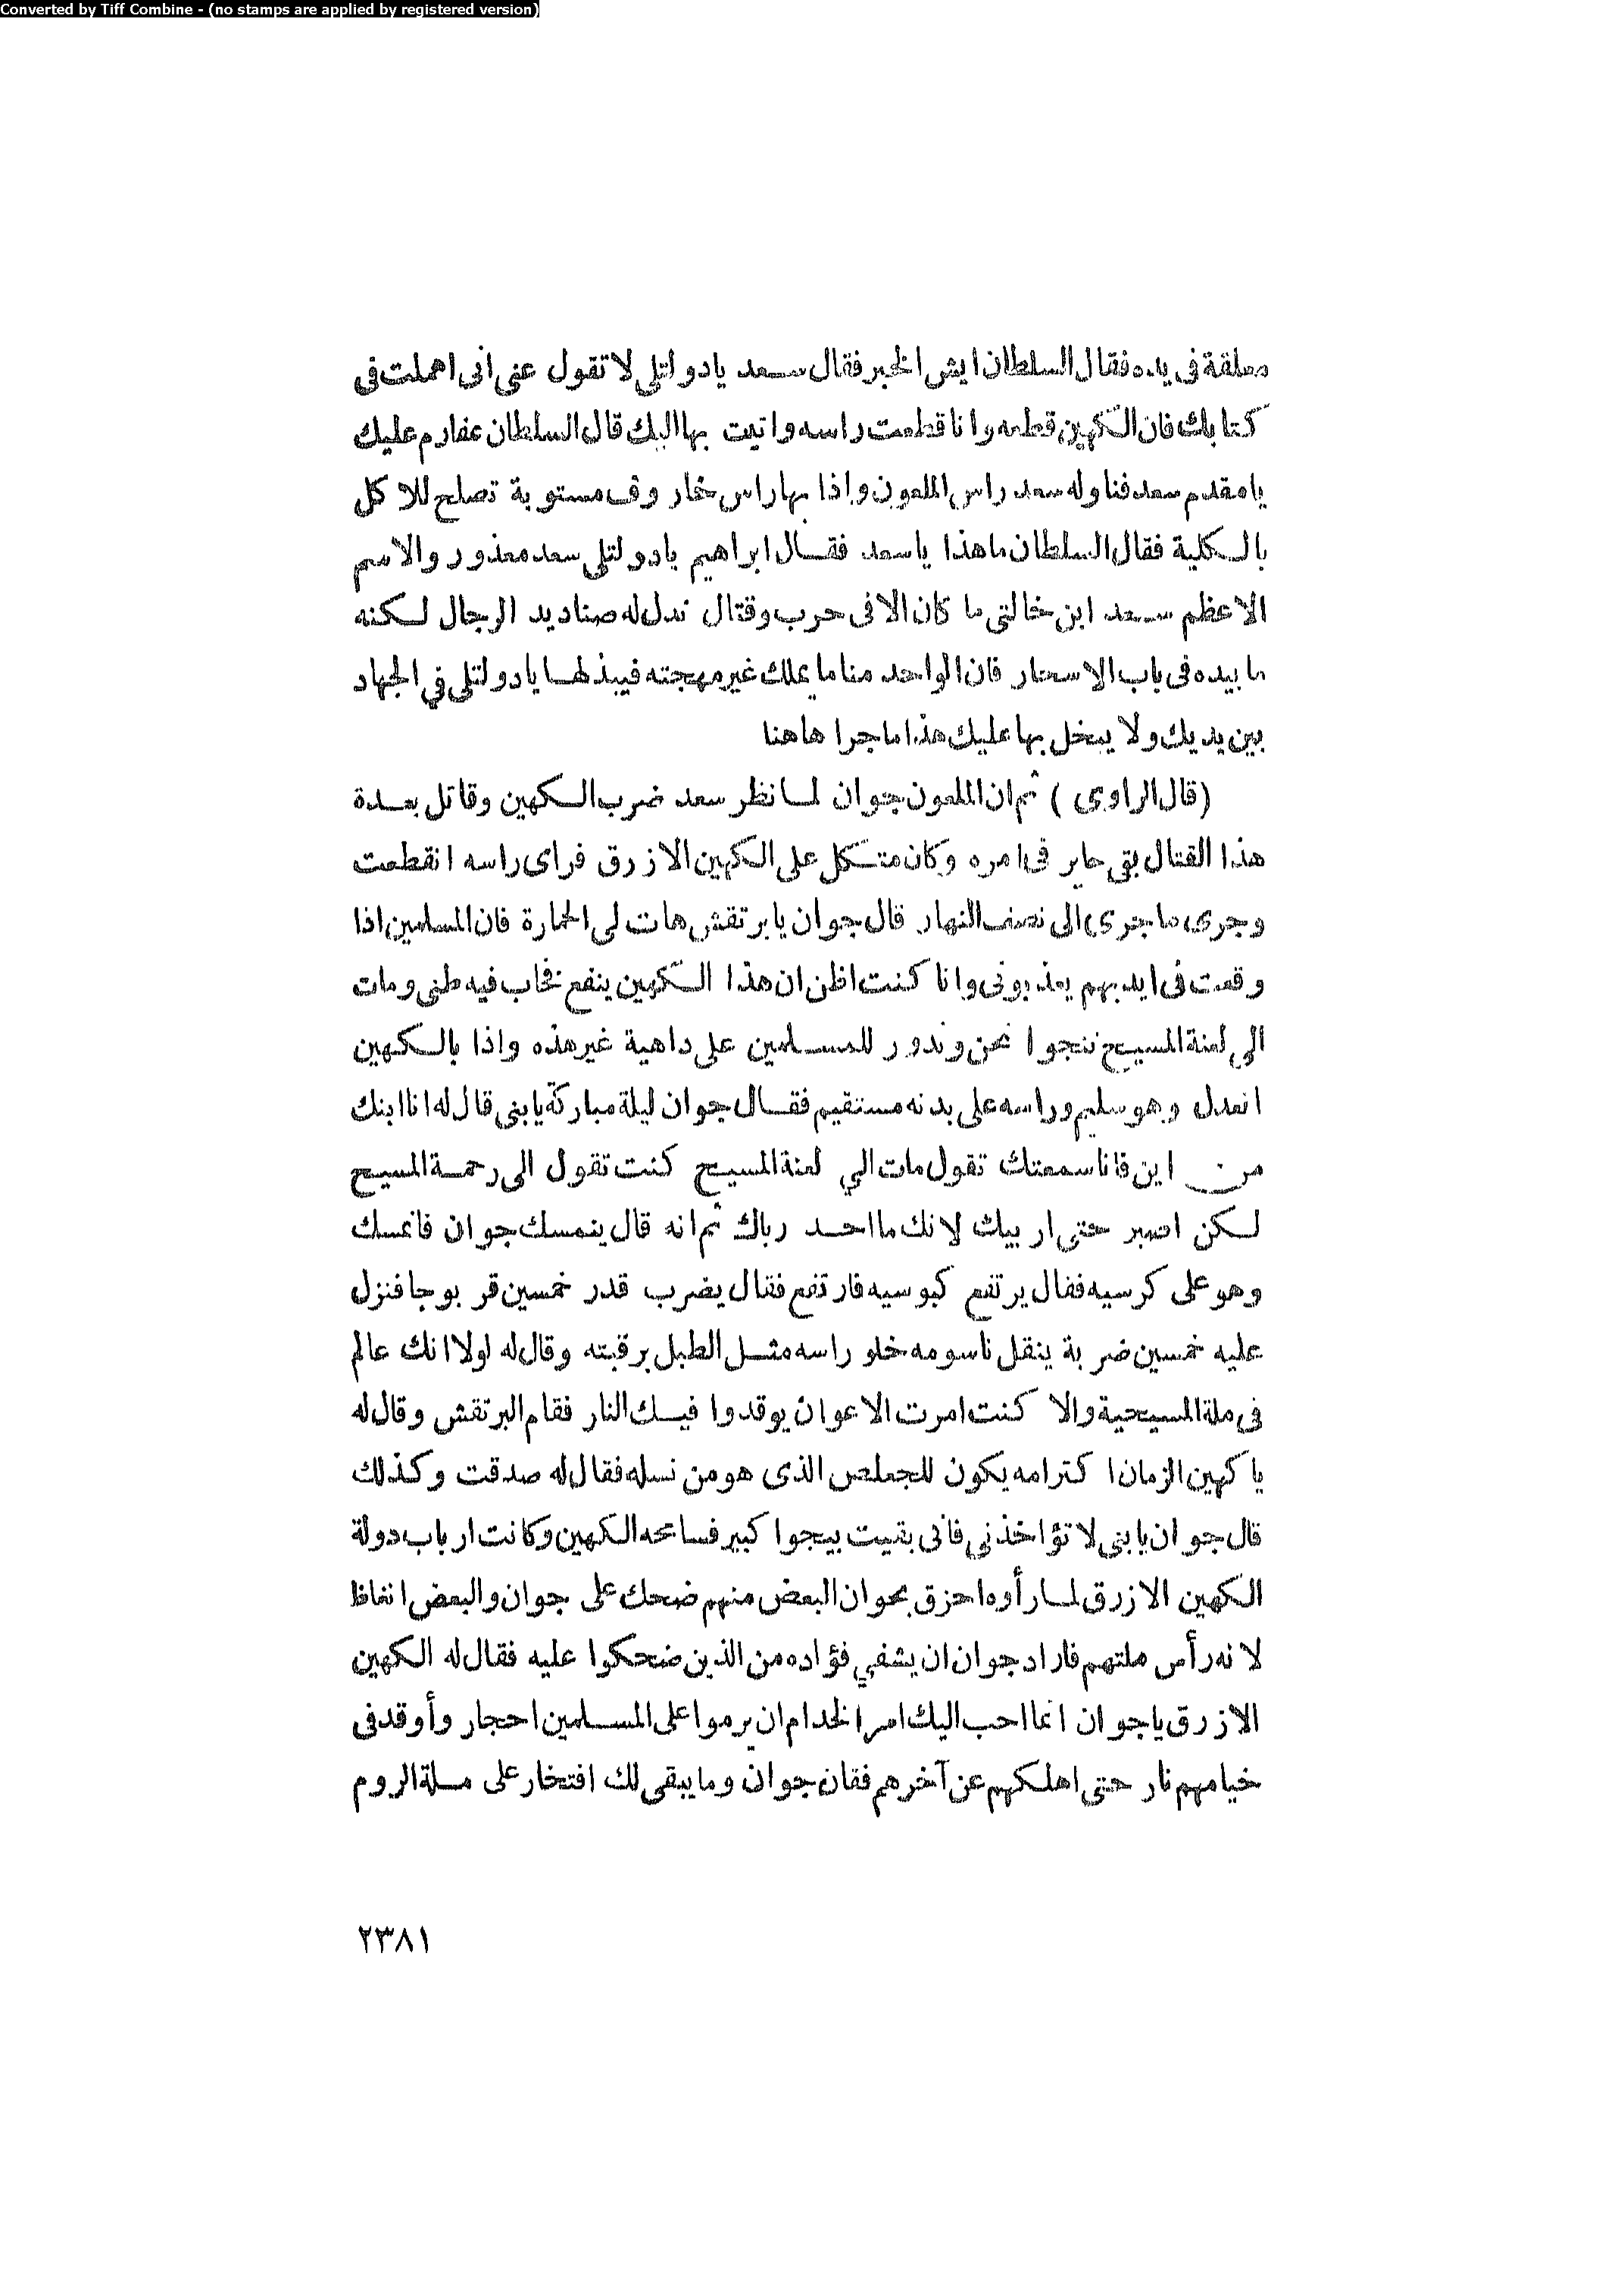 Converted by Tiff Combine - (no stamps are applied by registered version)
معلقة فى يده فقال السلطان ايش الخبر فقال سعد يادولتلى لا تقول عنى انى اهملت فى
كتابك فان الكهين قطعه وانا قطعت راسه واتيت بها اليك قال السلطان عفارم عليك
يا مقدم سعد فناوله سعد راس الملعون واذا بها راس خاروف مستوية تصلح للاكل
بالكلية فقال السلطان ما هذا يا سعد فقال ابراهيم يادولتلى سعد معذور والاسم
الاعظم سعد ابن خالتى ما كان الا فى حرب وقتال تدل له صناديد الرجال لكنه
ما بيده فى باب الاسحار فان الواحد منا ما يملك غير مهجته فيبذلها يادولتلى فى الجهاد
بين يديك ولا يبخل بها عليك هذا ما جرا هاهنا
(قال الراوى) ثم ان الملعون جوان لما نظر سعد ضرب الكهين وقاتل بعدة
هذا القتال بقى حاير فى امره وكان متكل على الكهين الازرق فراى راسه انقطعت
وجرى ما جرى الى نصف النهار قال جوان يا برتقش هات لى الحمارة فان المسلمين اذا
وقعت فى ايديهم يعذبونى وانا كنت اظن ان هذا الكهين ينفع فخاب فيه ظنى ومات
الى لعنة المسيح ننجوا نحن وندور للمسلمين على داهية غير هذه واذا بالكهين
انعدل وهو سليم وراسه على بدنه مستقيم فقال جوان ليلة مباركة يا بنى قال له انا ابنك
من اين فانا سمعتك تقول مات الى لعنة المسيح كنت تقول الى رحمة المسيح
لكن اصبر حتى اربيك لانك ما احد رباك ثم انه قال ينمسك جوان فانمسك
وهو على كرسيه فقال يرتفع كبوسيه فارتفع فقال يضرب قدر خمسين قربوجا فنزل
عليه خمسين ضربة ينقل ناسومه خلو راسه مثل الطبل برقبته وقال له لولا انك عالم
فى ملة المسيحية والا كنت امرت الاعوان يوقدوا فيك النار فقام البرتقش وقال له
يا كهين الزمان اكترامه يكون للجعلص الذى هو من نسله فقال له صدقت وكذلك
قال جوان يا بنى لا تؤاخذنى فانى بقيت بيجوا كبير فسامحه الكهين وكانت ارباب دولة
الكهين الازرق لما رأوه احزق بجوان البعض منهم ضحك على جوان والبعض انغاظ
لانه رأس ملتهم فاراد جوان ان يشفى فؤاده من الذين ضحكوا عليه فقال له الكهين
الازرق يا جوان انما احب اليك امر الخدام ان يرموا على المسلمين احجار وأوقد فى
خيامهم نار حتى اهلكهم عن آخرهم فقان جوان وما يبقى لك افتخار على ملة الروم
٢٣٨١